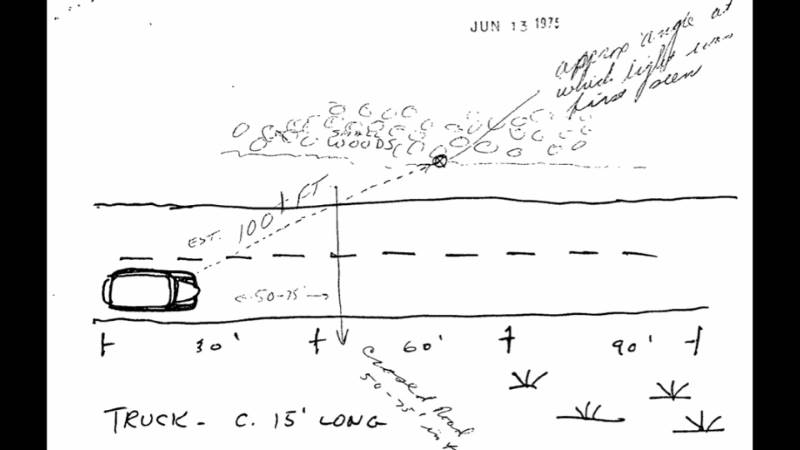 JUN 13 1975
approx angle at
which light was
first seen
SMALL
WOODS
EST. 100 ± FT
50-75'
30'
60'
90'
crossed Road
50-75' in
TRUCK - C. 15' LONG